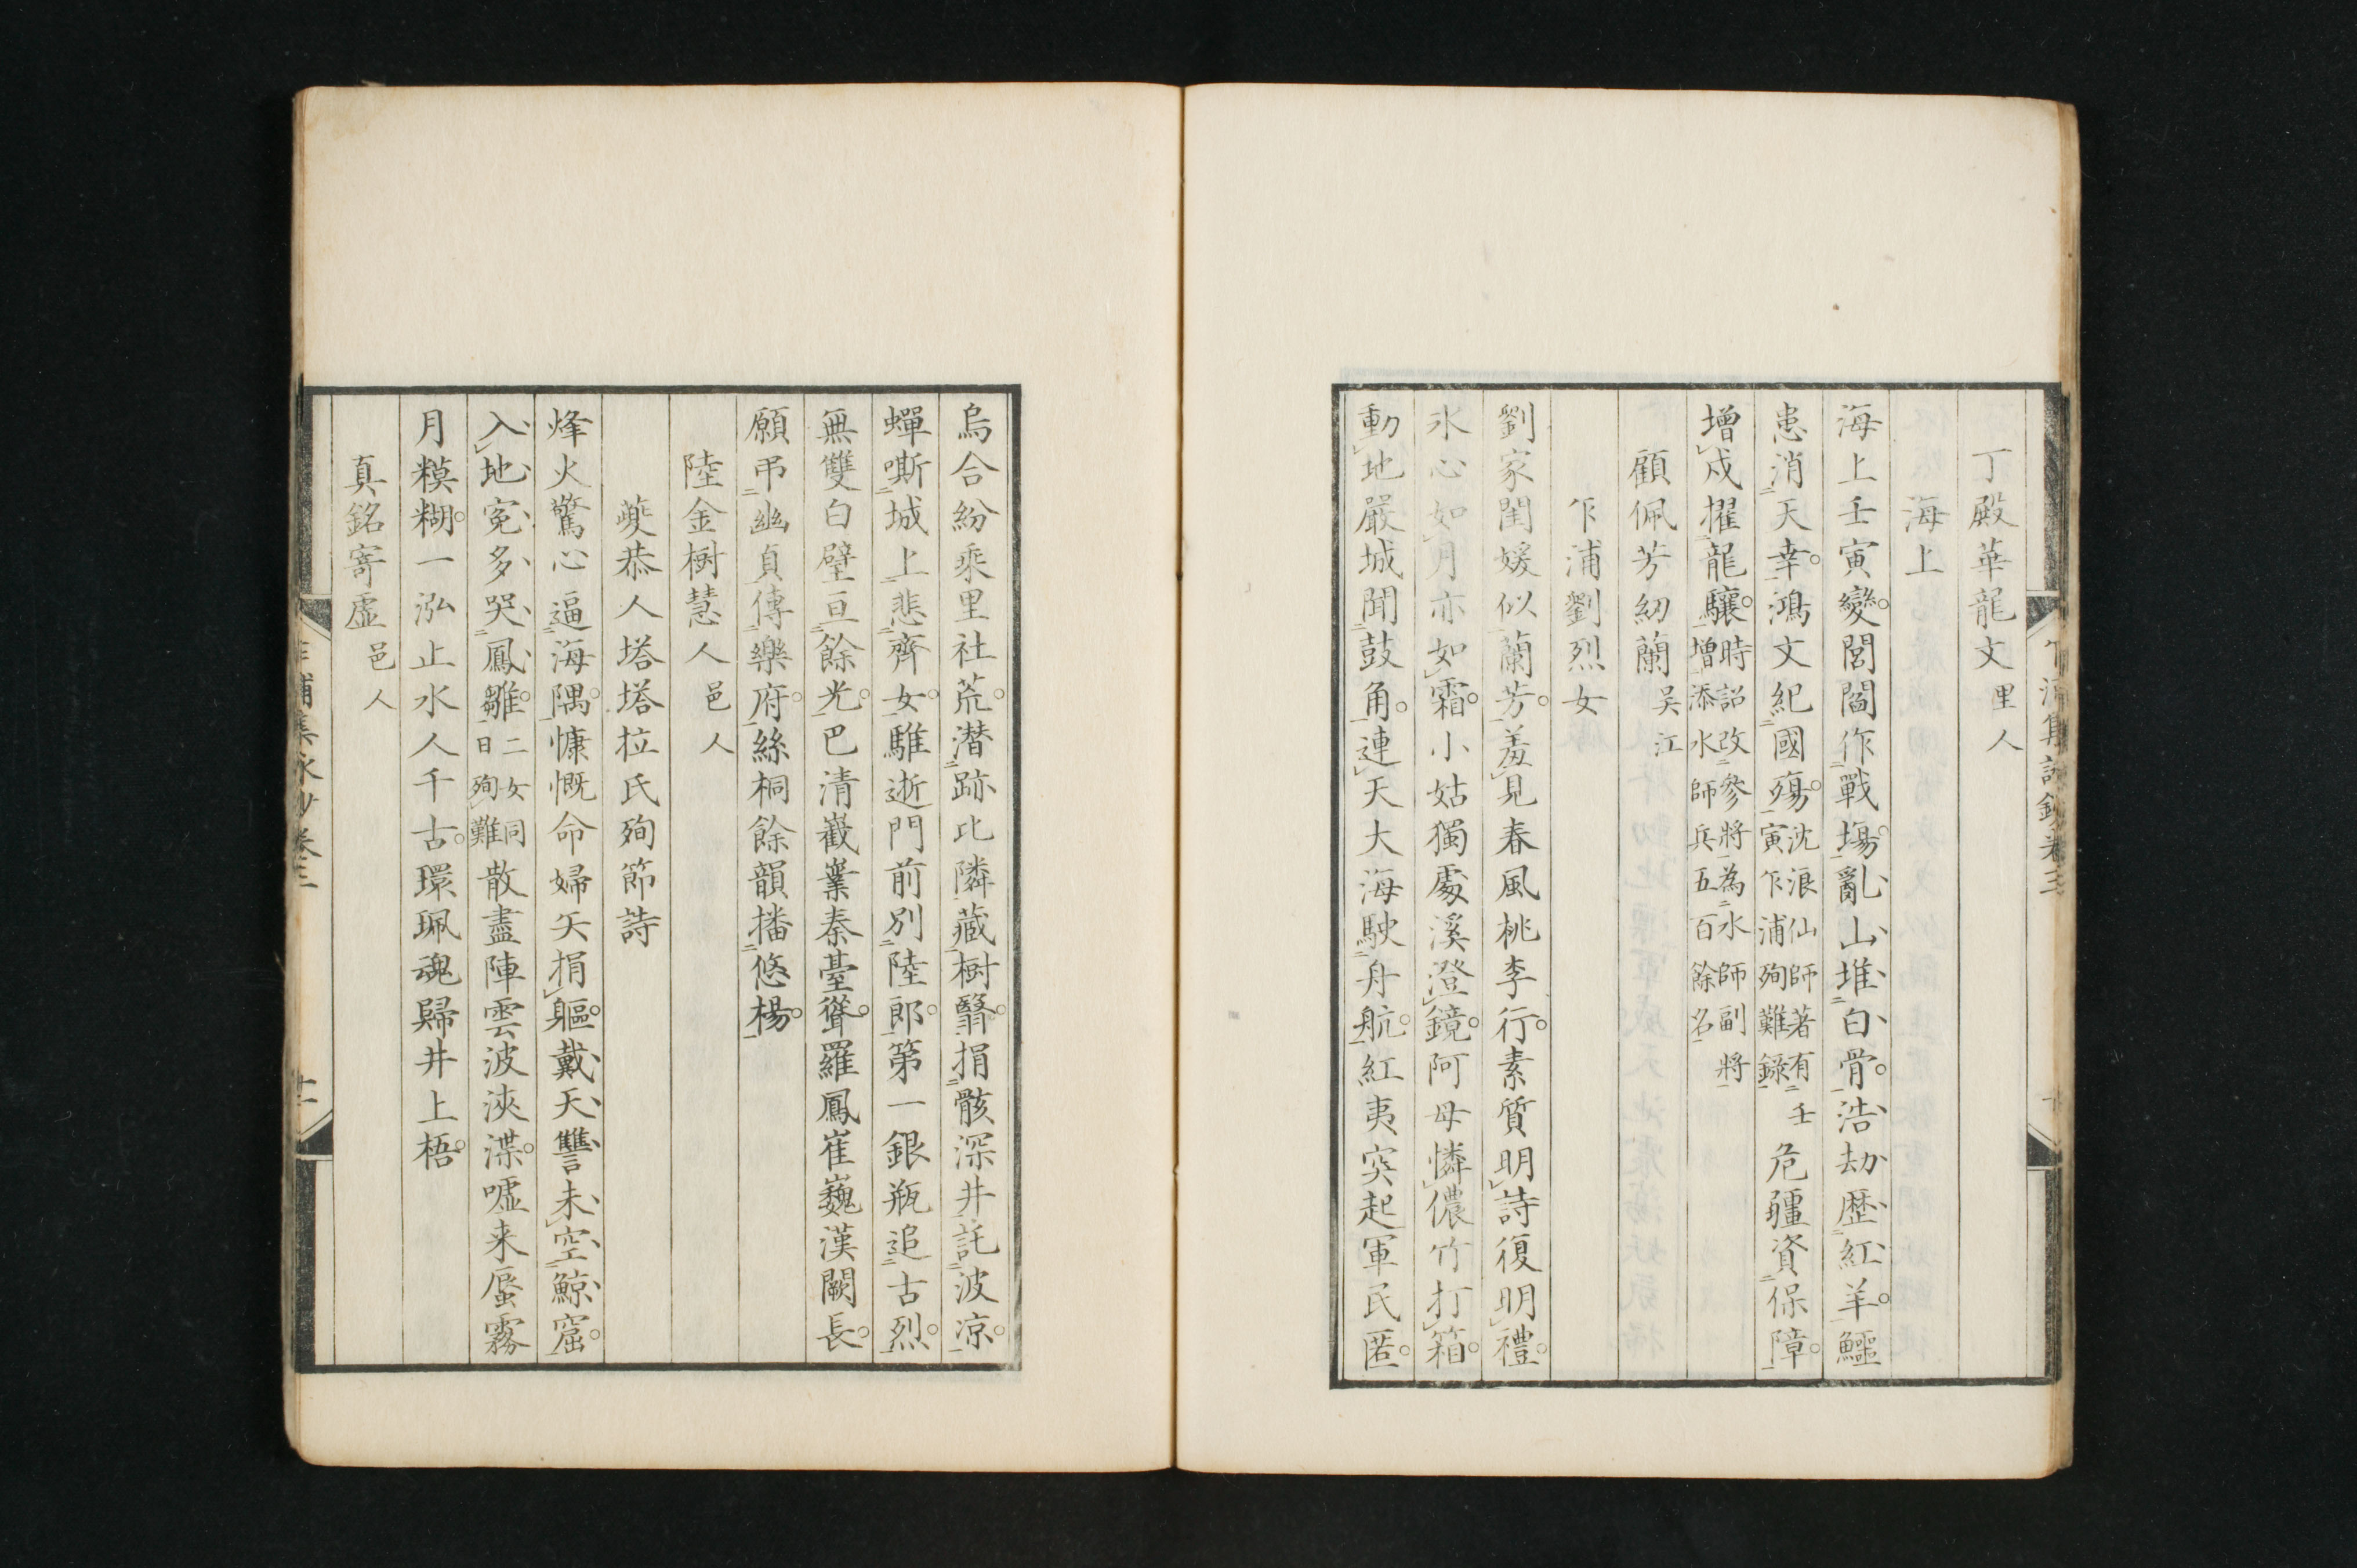 丁殿華龍文里人
海上
海上壬寅變閭閻作戰塲亂山堆白骨浩劫歷紅羊鱷
患消天幸鴻文紀國殤沈浪仙師著有壬寅乍浦殉難錄危疆資保障
增戍擢龍驤時詔改參將為水師副將增添水師兵五百餘名
顧佩芳紉蘭吴江
乍浦劉烈女
劉家閨媛似蘭芳羞見春風桃李行素質明詩復明禮
氷心如月亦如霜小姑獨處溪澄鏡阿母憐儂竹打箱
動地嚴城聞鼓角連天大海駛舟航紅夷突起軍民匿
烏合紛乘里社荒潛跡比隣藏樹翳捐骸深井託波凉
蟬嘶城上悲齊女騅逝門前別陸郎第一銀瓶追古烈
無雙白璧亘餘光巴清嶻嶪秦臺聳羅鳳崔巍漢闕長
願弔幽貞傳樂府絲桐餘韻播悠楊
陸金樹慧人邑人
夔恭人塔塔拉氏殉節詩
烽火驚心逼海隅慷慨命婦矢捐軀戴天讐未空鯨窟
入地寃多哭鳳雛二女同日殉難散盡陣雲波浹渫噓来蜃霧
月糢糊一泓止水人千古環珮魂歸井上梧
真銘寄虛邑人
乍浦集詠鈔卷三
十一